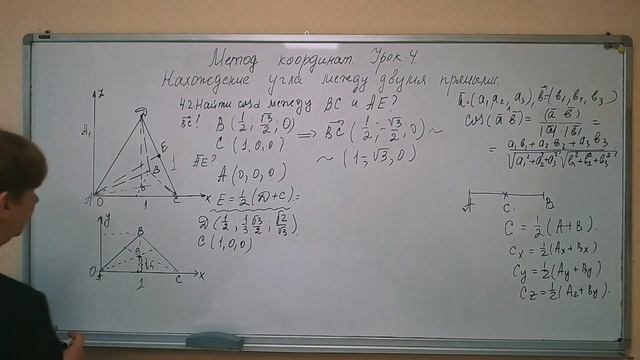 Метод координат. Урок 4.
Нахождение угла между двумя прямыми.
4.2. Найти cosα между BC и AE?
BC!
B (1/2; √3/2, 0)
C (1, 0, 0)
⇒ BC (1/2; -√3/2, 0) ~
~ (1; -√3, 0)
AE?
A (0, 0, 0)
E = 1/2 (D + C) =
D (1/2; 1/3 √3/2; √2/√3)
C (1, 0, 0)
a = (a₁, a₂, a₃), b = (b₁, b₂, b₃)
cos(a b) = (a b) / |a| |b| =
= a₁b₁ + a₂b₂ + a₃b₃ / √a₁² + a₂² + a₃² √b₁² + b₂² + b₃²
A C B
C = 1/2 (A + B).
Cx = 1/2 (Ax + Bx)
Cy = 1/2 (Ay + By)
Cz = 1/2 (Az + By).
z
A₁
D
E
B
1
O
1
C
x
y
B
O
A
1
C
x